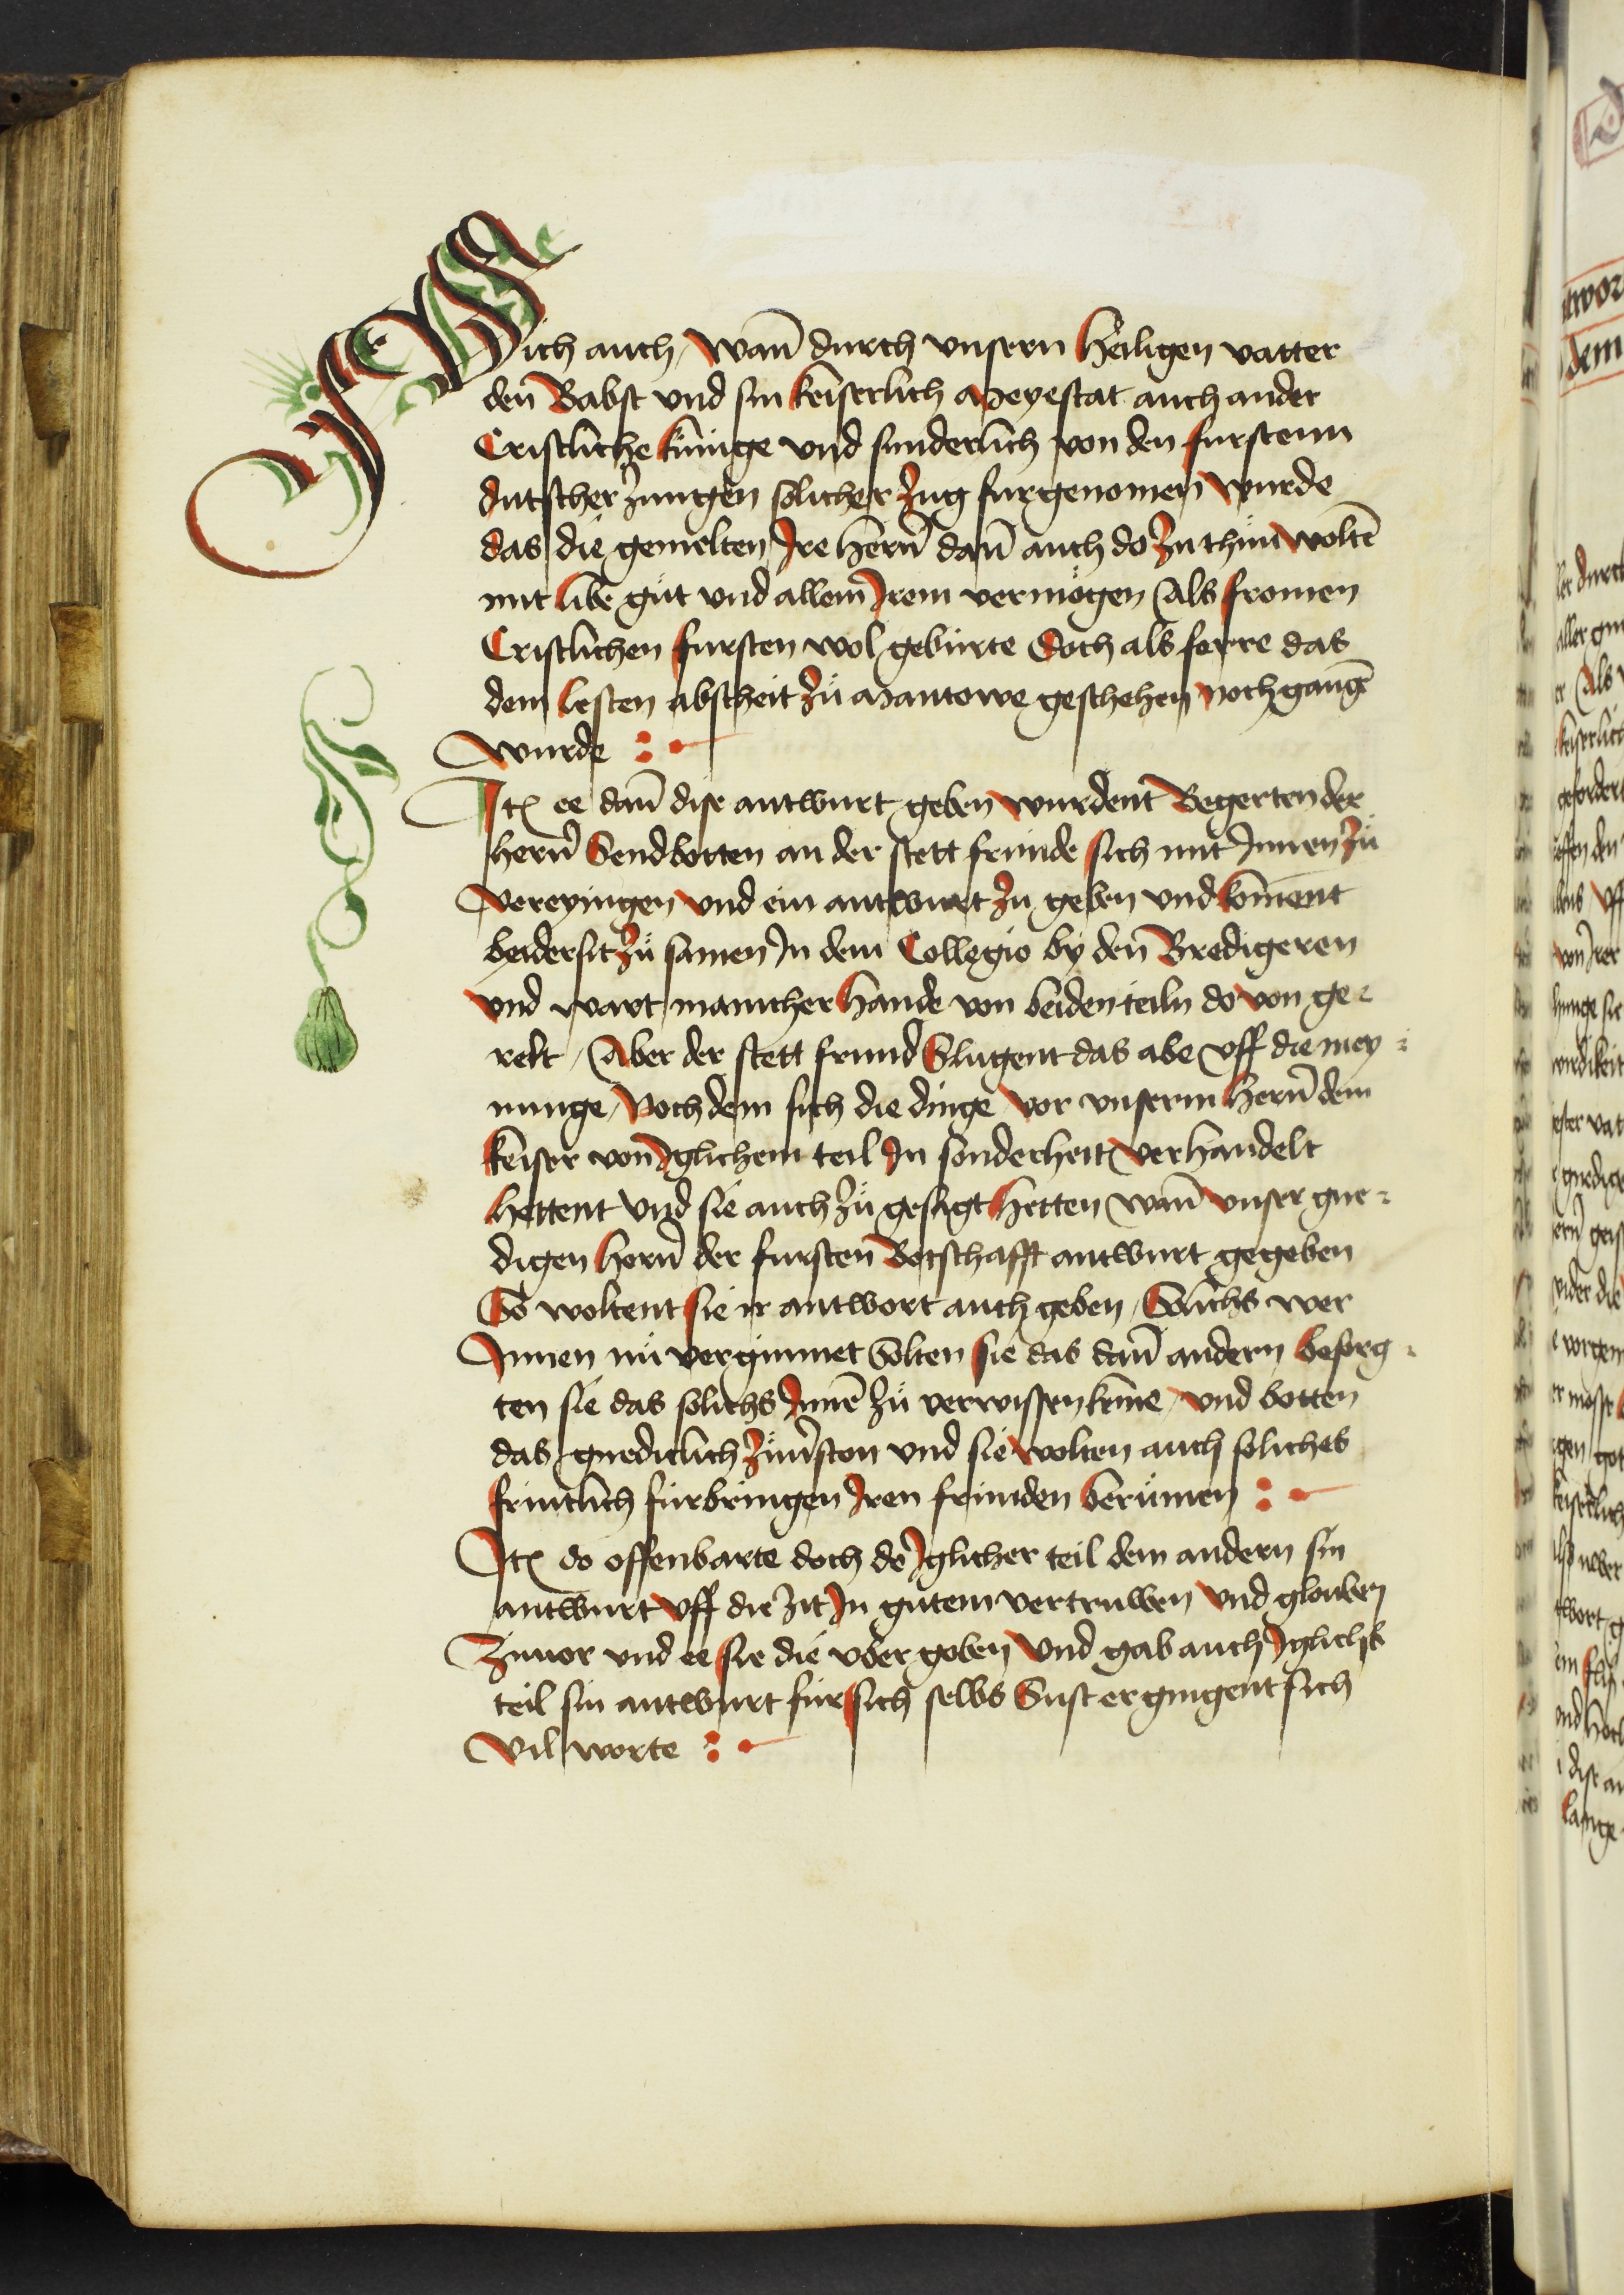 Sich auch / Wañ durch vnsern Heiligen vatter
den Babst vnd sin keiserlich Meyestat auch ander
Cristliche kunige vnd sunderlich von den furstenn
dutscher zungen solicher zug furgenomen wurde
das die gemelten Ire hern̄ dañ auch do zu thun woltē
mit libe gůt vnd allem Irem vermögen Als fromen
Cristlichen fursten wol gebürte Doch als ferre das
dem lesten abscheit zů Mantowe geschehen noch gangē
wurde :
Itē ee dañ dise antwurt geben wurdent Begerten der
hern̄ Sendbotten an der stett frunde sich mit Innen zů
vereyingen vnd ein antwurt zu geben vnd kōment
beidersit zů samen In dem Collegio by den Bredigeren
vnd wart manicher hande von beiden teiln do von ge-
relt / Aber der stett frund Slugent das abe vff die mey-
nunge / Noch dem sich die dinge vor vnserm hern̄ dem
keiser von Iglichem teil In sonderheit verhandelt
hettent Vnd sie auch zů gesagt hetten wañ vnser gne-
digen hern̄ der fursten Botschafft antwurt gegeben
So woltent sie ir antwort auch geben / Solichs wer
Innen nů vergunnet Solten sie das dañ andern besorg-
ten sie das solichs Innē zů verwissen keme / vnd botten
das gnediclich zůuerston vnd sie wolten auch soliches
fruntlich fürbringen Iren frunden berümen :
Itē do offenbarte doch do Iglicher teil dem andern sin
antwurt vff die zit In gůtem vertruwen vnd glouben
Zuuor vnd ee sie die vber goben Vnd gab auch Iglichs
teil sin antwurt für sich selbs Sust ergingent sich
Vil worte :